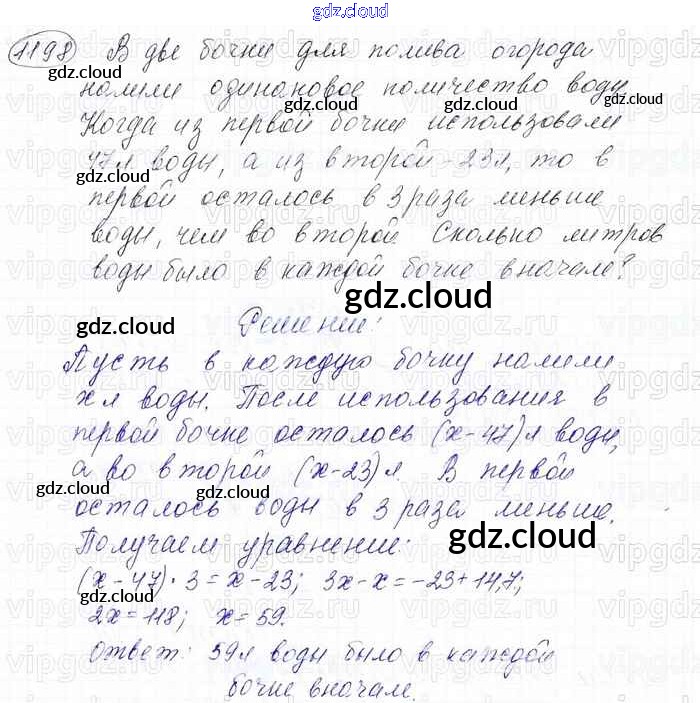 gdz.cloud
1198 В две бочки для полива огорода
gdz.cloud
налили одинаковое количество воды.
gdz.cloud gdz.cloud
Когда из первой бочки использовали
47 л воды, а из второй - 23 л, то в
gdz.cloud
первой осталось в 3 раза меньше
воды, чем во второй. Сколько литров
воды было в каждой бочке вначале?
gdz.cloud
gdz.cloud
Решение:
Пусть в каждую бочку налили
х л воды. После использования в
gdz.cloud
первой бочке осталось (х-47) л воды,
а во второй (х-23) л. В первой
gdz.cloud gdz.cloud
осталось воды в 3 раза меньше.
gdz.cloud
Получаем уравнение:
(х-47)·3=х-23; 3х-х=-23+14,7;
2х=118; х=59.
gdz.cloud
Ответ: 59 л воды было в каждой
бочке вначале.